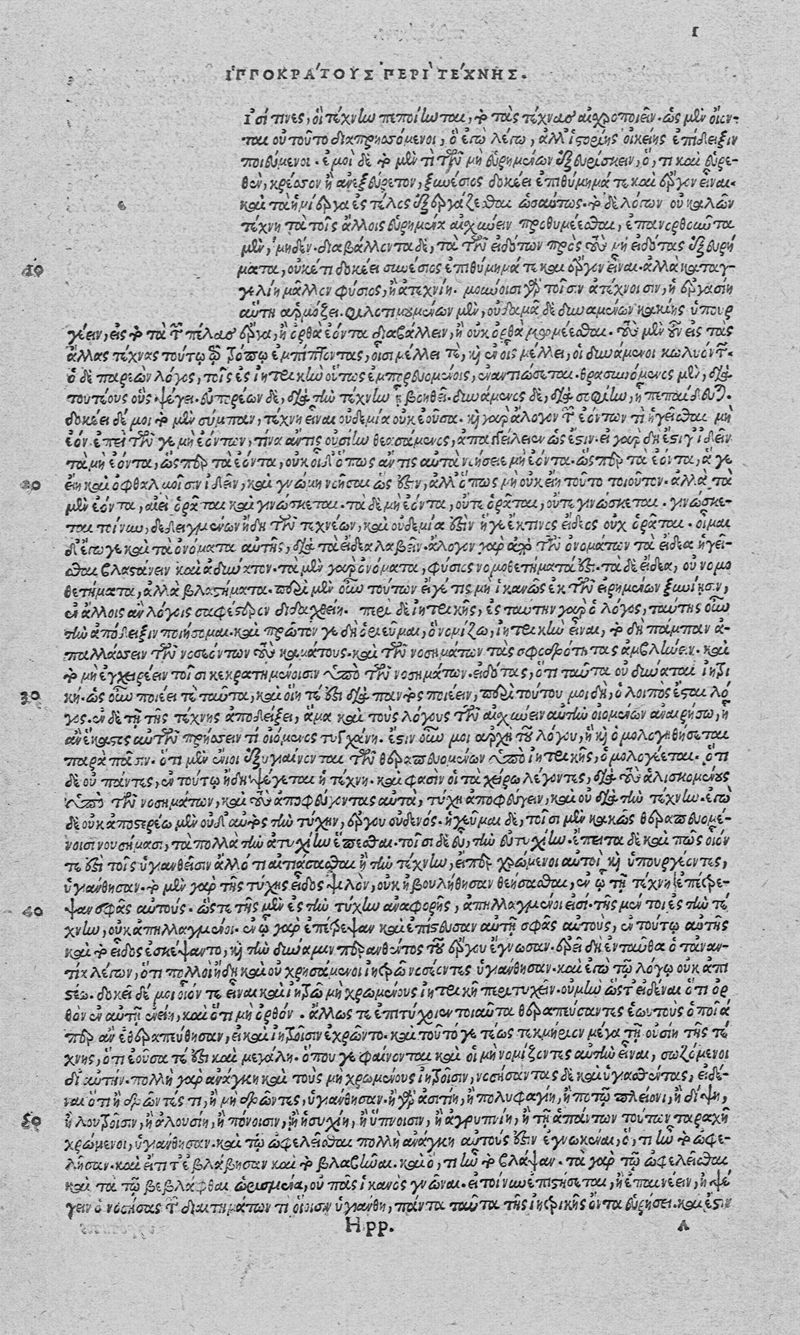 1
ἹΠΠΟΚΡΆΤΟΥΣ ΠΕΡῚ ΤΈΧΝΗΣ.
Ισί τινες, οἳ τέχνην πεποίηνται, τὸ τὰς τέχνας αἰσχροποιεῖν. ὡς μὲν οἴον-
ται οὐ τοῦτο διαπρησσόμενοι, ὃ ἐγὼ λέγω, ἀλλ' ἱστορίης οἰκείης ἐπίδειξιν
ποιεύμενοι. ἐμοὶ δὲ τὸ μὲν τὶ τῶν μὴ εὑρημένων ἐξευρίσκειν, ὅ, τι καὶ εὑρε-
θὲν, κρέσσον ἢ ἀνεξεύρετον, ξυνέσιος δοκέει ἐπιθύμημά τε καὶ ἔργον εἶναι.
καὶ τὰ ἡμίεργα ἐς τέλος ἐξεργάζεσθαι ὡσαύτως. τὸ δὲ λόγων οὐ καλῶν
τέχνῃ τὰ τοῖς ἄλλοις εὑρημένα αἰσχύνειν προθυμέεσθαι, ἐπανορθοῦντα
μὲν, μηδὲν. διαβάλλοντα δὲ, τὰ τῶν εἰδότων πρὸς τοὺς μὴ εἰδότας ἐξευρή
10
ματα, οὐκέτι δοκέει συνέσιος ἐπιθύμημά τε καὶ ἔργον εἶναι. ἀλλὰ καταγ-
γελίη μᾶλλον φύσιος, ἢ ἀτεχνίη. μούνοισι γὰρ τοῖσιν ἀτέχνοισιν, ἡ ἐργασίη
αὕτη ἁρμόζει. φιλοτιμουμένων μὲν, οὐδαμὰ δὲ δυναμένων κακίης ὑπουρ
γέειν, εἰς τὸ τὰ τοῦ πέλας ἔργα, ἢ ὀρθὰ ἐόντα διαβάλλειν, ἢ οὐκ ὀρθὰ μωμέεσθαι. τοὺς μὲν οὖν εἰς τὰς
ἄλλας τέχνας τούτῳ τῷ τρόπῳ ἐμπίπτοντας, οἷσι μέλλει τὲ, καὶ ἐν οἷς μέλλει, οἱ δυνάμενοι κωλυόντων.
ὁ δὲ παρεὼν λόγος, τοῖς ἐς ἰητρικὴν οὕτως ἐμπορευομένοις, ἐναντιώσεται. θρασυνόμενος μὲν, διὰ
τουτέους οὓς ψέγει. εὐπορέων δὲ, διὰ τὴν τέχνην ᾗ βοηθεῖ. δυνάμενος δὲ, διὰ σοφίην, ᾗ πεπαίδευται.
δοκέει δέ μοι τὸ μὲν σύμπαν, τέχνη εἶναι οὐδεμία οὐκ ἐοῦσα. καὶ γὰρ ἄλογον τῶν ἐόντων τὶ ἡγεῖσθαι μὴ
ἐόν. ἐπεὶ τῶν γε μὴ ἐόντων, τίνα ἄν τις οὐσίην θεασάμενος, ἀπαγγείλειεν ὡς ἔστιν. εἰ γὰρ δὴ ἔστι γ' ἰδεῖν
τὰ μὴ ἐόντα, ὥσπερ τὰ ἐόντα, οὐκ οἶδ' ὅπως ἄν τις αὐτὰ νομίσειε μὴ ἐόντα. ὥσπερ τὰ ἐόντα, ἅ γε
20
εἴη καὶ ὀφθαλμοῖσιν ἰδεῖν, καὶ γνώμῃ νοῆσαι ὡς ἔστιν, ἀλλ' ὅπως μὴ οὐκ ἔῃ τοῦτο τοιοῦτον. ἀλλὰ τὰ
μὲν ἐόντα, αἰεὶ ὁρᾶται καὶ γινώσκεται. τὰ δὲ μὴ ἐόντα, οὔτε ὁρᾶται, οὔτε γινώσκεται. γινώσκε-
ται τοίνυν, δεδειγμένων ἤδη τῶν τεχνέων, καὶ οὐδεμία ἐστὶν ἥ γε ἔκ τινος εἴδεος οὐχ ὁρᾶται. οἶμαι
δ' ἔγωγε καὶ τὰ ὀνόματα αὐτῆς, διὰ τὰ εἴδεα λαβεῖν. ἄλογον γὰρ ἀπὸ τῶν ὀνομάτων τὰ εἴδεα ἡγεῖ-
σθαι βλαστάνειν καὶ ἀδύνατον. τὰ μὲν γὰρ ὀνόματα, φύσιος νομοθετήματά ἐστι. τὰ δὲ εἴδεα, οὐ νομο
θετήματα, ἀλλὰ βλαστήματα. περὶ μὲν οὖν τούτων εἴ γέ τις μὴ ἱκανῶς ἐκ τῶν εἰρημένων ξυνίησιν,
ἐν ἄλλοις ἂν λόγοις σαφέστερον διδαχθείη. περὶ δὲ ἰητρικῆς, ἐς ταύτην γὰρ ὁ λόγος, ταύτης οὖν
τὴν ἀπόδειξιν ποιήσομαι. καὶ πρῶτον γε διοριεῦμαι, ὃ νομίζω, ἰητρικὴν εἶναι, τὸ δὴ πάμπαν ἀ-
παλλάσσειν τῶν νοσεόντων τοὺς καμάτους. καὶ τῶν νοσημάτων τὰς σφοδρότητας ἀμβλύνειν. καὶ
τὸ μὴ ἐγχειρέειν τοῖσι κεκρατημένοισιν ὑπὸ τῶν νοσημάτων. εἰδότας, ὅτι ταῦτα οὐ δύναται ἰητρι
30
κή. ὡς οὖν ποιέει τὲ ταῦτα, καὶ οἵη τέ ἐστι διὰ παντὸς ποιέειν, περὶ τούτου μοι δὴ, ὁ λοιπὸς ἔσται λό
γος. ἐν δὲ τῇ τῆς τέχνης ἀποδείξει, ἅμα καὶ τοὺς λόγους τῶν αἰσχύνειν αὐτὴν οἰομένων ἀναιρήσω, ᾗ
ἂν ἕκαστος αὐτῶν πρήσσειν τὶ οἰόμενος τυγχάνῃ. ἔστιν οὖν μοι ἀρχὴ τοῦ λόγου, ἣ καὶ ὁμολογηθήσεται
παρὰ πᾶσιν. ὅτι μὲν ἔνιοι ἐξυγιαίνονται τῶν θεραπευομένων ὑπὸ ἰητρικῆς, ὁμολογέεται. ὅτι
δὲ οὐ πάντες, ἐν τούτῳ ἤδη ψέγεται ἡ τέχνη. καὶ φασὶν οἱ τὰ χείρω λέγοντες, διὰ τοὺς ἁλισκομένους
ὑπὸ τῶν νοσημάτων, καὶ τοὺς ἀποφεύγοντας αὐτὰ, τύχῃ ἀποφεύγειν, καὶ οὐ διὰ τὴν τέχνην. ἐγὼ
δὲ οὐκ ἀποστερέω μὲν οὐδ' αὐτὸς τὴν τύχην, ἔργου οὐδενός. ἡγεῦμαι δὲ, τοῖσι μὲν κακῶς θεραπευομέ-
νοισι νουσήμασι, τὰ πολλὰ τὴν ἀτυχίην ἕπεσθαι. τοῖσι δὲ εὖ, τὴν εὐτυχίην. ἔπειτα δὲ καὶ πῶς οἷόν
τέ ἐστι τοῖς ὑγιανθεῖσιν ἄλλό τι αἰτιάσασθαι ἢ τὴν τέχνην, εἴπερ χρώμενοι αὐτοὶ καὶ ὑπουργέοντες,
ὑγιάνθησαν. τὸ μὲν γὰρ τῆς τύχης εἶδος ψιλὸν, οὐκ ἠβουλήθησαν θεήσασθαι, ἐν ᾧ τῇ τέχνῃ ἐπέτρε-
40
ψαν σφᾶς αὐτούς. ὥστε τῆς μὲν ἐς τὴν τύχην ἀναφορῆς, ἀπηλλαγμένοι εἰσί. τῆς μέν τοι ἐς τὴν τέ
χνην, οὐκ ἀπηλλαγμένοι. ἐν ᾧ γὰρ ἐπέτρεψαν καὶ ἐπίστευσαν αὐτῇ σφᾶς αὐτοὺς, ἐν τούτῳ αὐτῆς
καὶ τὸ εἶδος ἐσκέψαντο, καὶ τὴν δύναμιν περανθέντος τοῦ ἔργου ἔγνωσαν. ἐρεῖ δὴ ἐνταῦθα ὁ τἀναν-
τία λέγων, ὅτι πολλοὶ ἤδη καὶ οὐ χρησάμενοι ἰητρῷ νοσέοντες ὑγιάνθησαν. καὶ ἐγὼ τῷ λόγῳ οὐκ ἀπι
στέω. δοκεῖ δέ μοι οἷόν τε εἶναι καὶ ἰητρῷ μὴ χρωμένους ἰητρικῇ περιτυχεῖν. οὐ μὴν ὥστ' εἰδέναι ὅτι ὀρ
θὸν ἐν αὐτῇ ἐνείη, καὶ ὅτι μὴ ὀρθόν. ἄλλως τε ἐπιτύχοιεν τοιαῦτα θεραπεύσαντες ἑωυτοὺς ὁποῖά
περ ἂν ἐθεραπεύθησαν, εἰ καὶ ἰητροῖσιν ἐχρῶντο. καὶ τοῦτό γε τέως τεκμήριον μέγα τῇ οὐσίῃ τῆς τέ
χνης, ὅτι ἐοῦσα τέ ἐστι καὶ μεγάλη. ὅπου γε φαίνονται καὶ οἱ μὴ νομίζοντες αὐτὴν εἶναι, σωζόμενοι
δι' αὐτήν. πολλὴ γὰρ ἀνάγκη καὶ τοὺς μὴ χρωμένους ἰητροῖσιν, νοσήσαντας δὲ καὶ ὑγιασθέντας, εἰδέ-
ναι ὅτι ἢ δρῶντές τι, ἢ μὴ δρῶντες, ὑγιάνθησαν. ἢ γὰρ ἀσιτίῃ, ἢ πολυφαγίῃ, ἢ ποτῷ πλείονι, ἢ δίψῃ,
50
ἢ λουτροῖσιν, ἢ ἀλουσίῃ, ἢ πόνοισιν, ἢ ἡσυχίῃ, ἢ ὕπνοισιν, ἢ ἀγρυπνίῃ, ἢ τῇ ἁπάντων τούτων ταραχῇ
χρώμενοι, ὑγιάνθησαν. καὶ τῷ ὠφελεῖσθαι πολλὴ ἀνάγκη αὐτοὺς ἐστὶν ἐγνωκέναι, ὅ, τι ἦν τὸ ὠφε-
λῆσαν. καὶ εἴ τι τ' ἐβλάβησαν καὶ τὸ βλαβῆναι. καὶ ὅ, τι ἦν τὸ βλάψαν. τὰ γὰρ τῷ ὠφελεῖσθαι
καὶ τὰ τῷ βεβλάφθαι ὡρισμένα, οὐ πᾶς ἱκανὸς γνῶναι. εἰ τοίνυν ἐπιστήσεται, ἢ ἐπαινέειν, ἢ ψέ
γειν ὁ νοσήσας τῶν διαιτημάτων τι οἷσιν ὑγιάνθη, πάντα ταῦτα τῆς ἰητρικῆς ὄντα εὑρήσει. καὶ ἔστιν
Hpp.
A